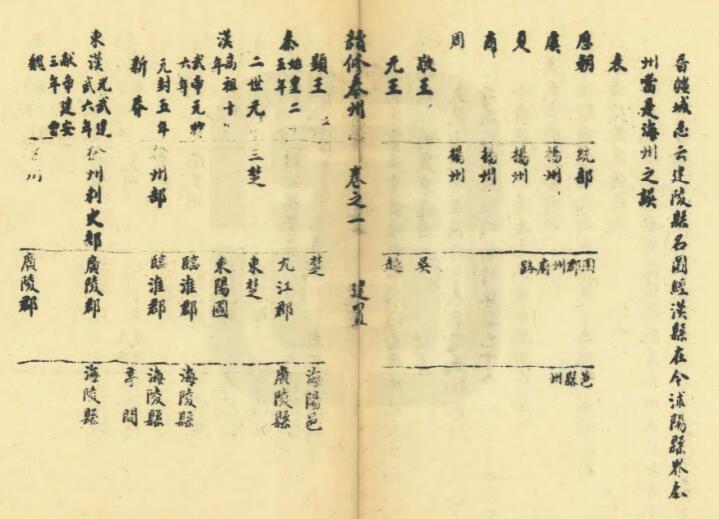 晉疆域志云建陵縣名圖經漢縣在今沭陽縣界泰
州當是海州之誤
表
歷朝 統部 國郡州府路 邑縣州
虞 揚州
夏 揚州
商 揚州
周 揚州
敬王 吳
元王 越
續修泰州志 卷之一 建置
顯王 楚 海陽邑
秦始皇二五年 九江郡 廣陵縣
二世元 三楚 東楚
漢高祖十年 東陽國
武帝元狩六年 臨淮郡 海陵縣
元封五年 徐州部 臨淮郡 海陵縣
新莽 亭間
東漢光武建武六年 徐州刺史部 廣陵郡 海陵縣
獻帝建安三年 廣陵郡
魏 州